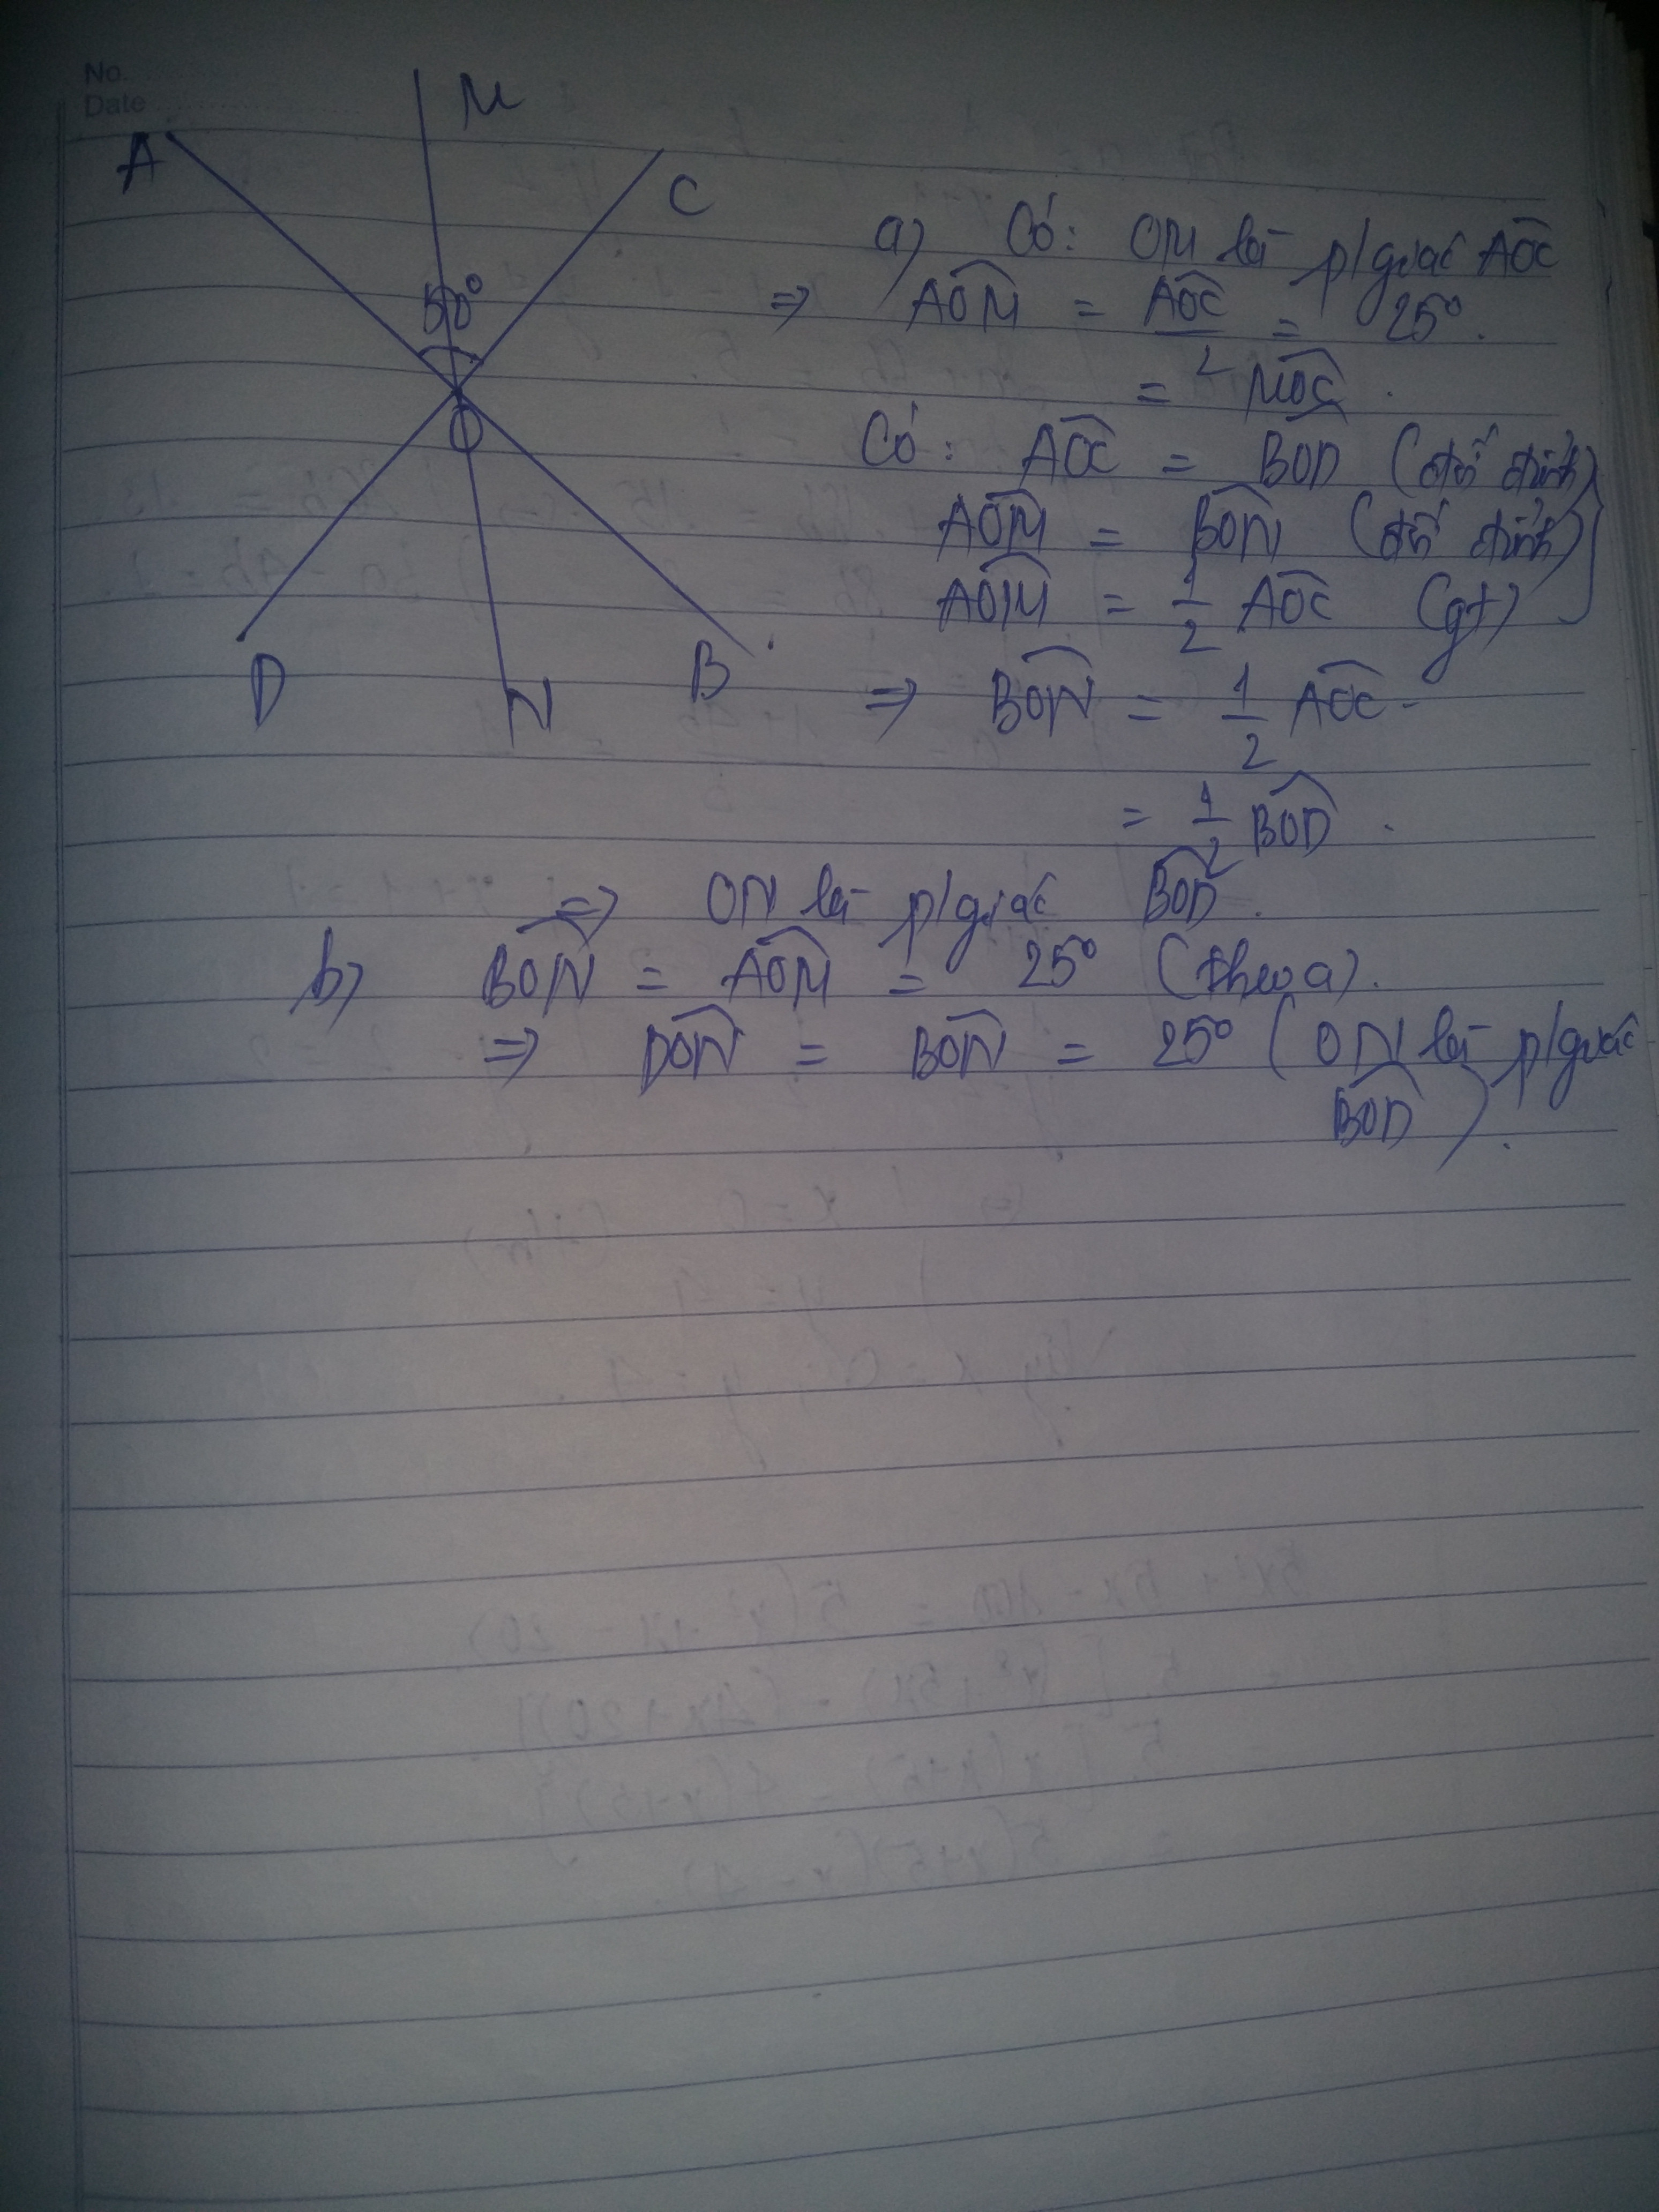 No.
Date
M
A
C
50°
O
D
N
B
a) Có: OM là p/giác AOC
⇒ AOM = AOC/2 = 25°.
= MOC.
Có: AOC = BOD (đối đỉnh)
AOM = BON (đối đỉnh)
AOM = 1/2 AOC (gt)
⇒ BON = 1/2 AOC.
= 1/2 BOD.
⇒ ON là p/giác BOD.
b) BON = AOM = 25° (theo a).
⇒ DON = BON = 25° (ON là p/giác
BOD).